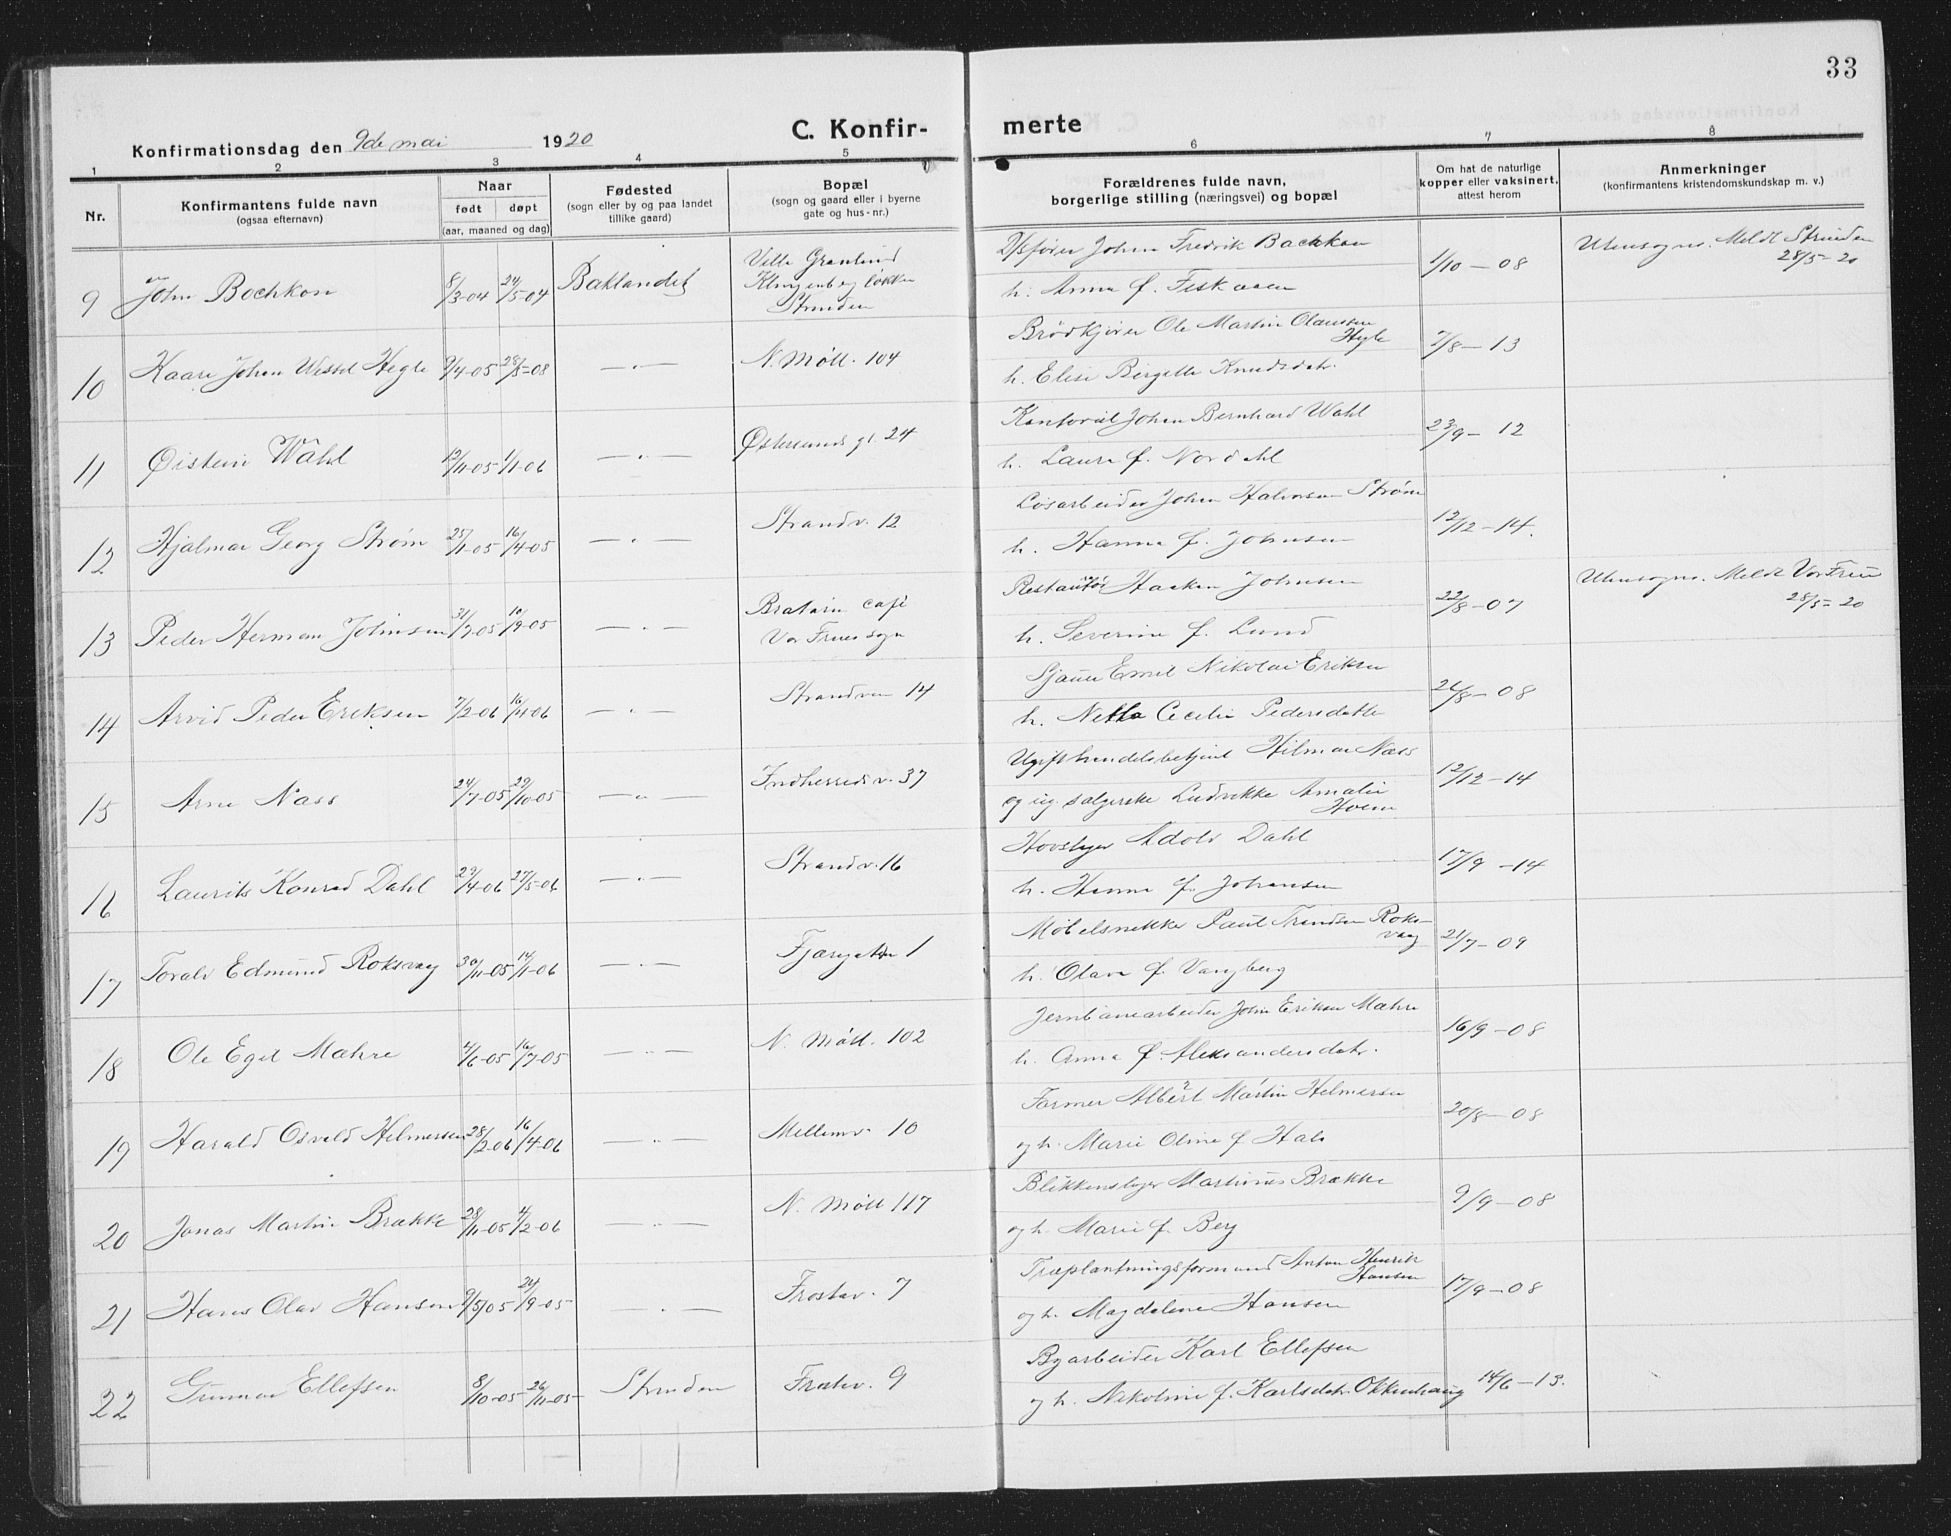 33
C. Konfir-
merte
Konfirmationsdag den 9de mai 1920
1 2 3 4 5 6 7 8
Nr.
Konfirmantens fulde navn
(ogsaa efternavn)
Naar
født døpt
(aar, maaned og dag)
Fødested
(sogn eller by og paa landet
tillike gaard)
Bopæl
(sogn og gaard eller i byerne
gate og hus-nr.)
Forældrenes fulde navn,
borgerlige stilling (næringsvei) og bopæl
Om hat de naturlige
kopper eller vaksinert,
attest herom
Anmerkninger
(konfirmantens kristendomskundskap m. v.)
9 John Bochkon 8/3-04 24/5-04 Baklandet
Strinden
Johan Fredrik Backkon
h. Anna f. Feskaaen
1/10-08
Utensogns. Meldt Strinden
28/5-20
10 Kaare Johan Wessel Hegle 9/4-05 28/5-08 —"— N. Møll. 104
Brödkjörer Ole Martin Olaussen
Hegle
h. Elise Bergette Knudsdatr.
7/8-13
11 Øistein Wahl 12/11-05 1/1-06 —"— Østersunds gt. 24
Kontorist Johan Bernhard Wahl
h. Laura f. Nordahl
23/9-12
12 Hjalmar Georg Strøm 25/1-05 16/4-05 —"— Strandv. 12
Løsarbeider Johan Halvorsen Strøm
h. Hanna f. Johnsen
12/12-14.
13 Peder Herman Johnsen 31/7-05 10/9-05 —"— Bratørn café
Vor Frues sogn
Restauratør Haaken Johnsen
h. Severine f. Lund
22/8-07
Utensogns. Meldt Vor Frue
28/5-20
14 Arvid Peder Eriksen 7/2-06 16/4-06 —"— Strandven 14
Sjauer Emil Nikolai Eriksen
h. Netta Cecilie Pedersdatter
26/8-08
15 Arne Næss 24/7-05 29/10-05 —"— Indherredsv. 37
Ugift handelsbetjent Hilmar Næss
og ug. sælgerske Ludvikke Amalie
Hoem
12/12-14
16 Laurits Konrad Dahl 29/4-06 27/5-06 —"— Strandv. 16
Hovslager Adolv Dahl
h. Hanna f. Johansen
17/9-14
17 Toralv Edmund Roksvaag 30/11-05 14/1-06 —"— Fjæregaten 1
Møbelsnekker Paul Trondsen Roks-
vaag
h. Olava f. Vangberg
21/7-09
18 Ole Egil Mæhre 4/6-05 16/7-05 —"— N. Møll. 102
Jernbanearbeider John Eriksen Mæhre
h. Anna f. Aleksandersdatr.
16/9-08
19 Harald Osvald Helmersen 28/2-06 16/4-06 —"— Mellemv. 10
Farmer Albert Martin Helmersen
og h. Marie Oline f. Hals
20/8-08
20 Jonas Martin Brække 28/11-05 4/2-06 —"— N. Møll 117
Blikkenslager Martinus Brække
og h. Marie f. Berg
9/9-08
21 Hans Olav Hansen 9/5/05 24/9-05 —"— Frostav. 7
Træplantningsformand Anton Henrik
Hansen
og h. Magdalene Hansen
17/9-08
22 Gunnar Ellefsen 8/10-05 26/11-05 Strinden Frostav. 9
Byarbeider Karl Ellefsen
og h. Nikoline f. Karlsdatr. Okkenhaug
14/6-13.